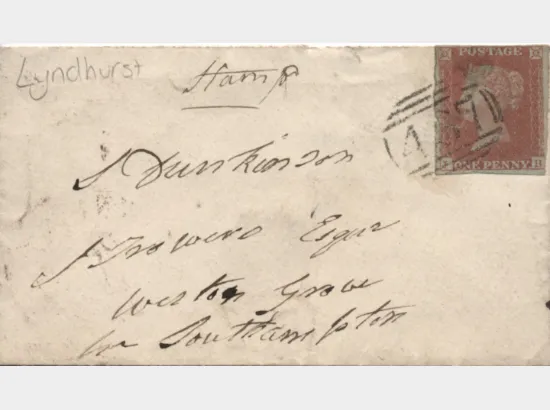 Lyndhurst
Stamp
POSTAGE
ONE PENNY
S Dunkinson
Esqur
Weston Grove
Southampton